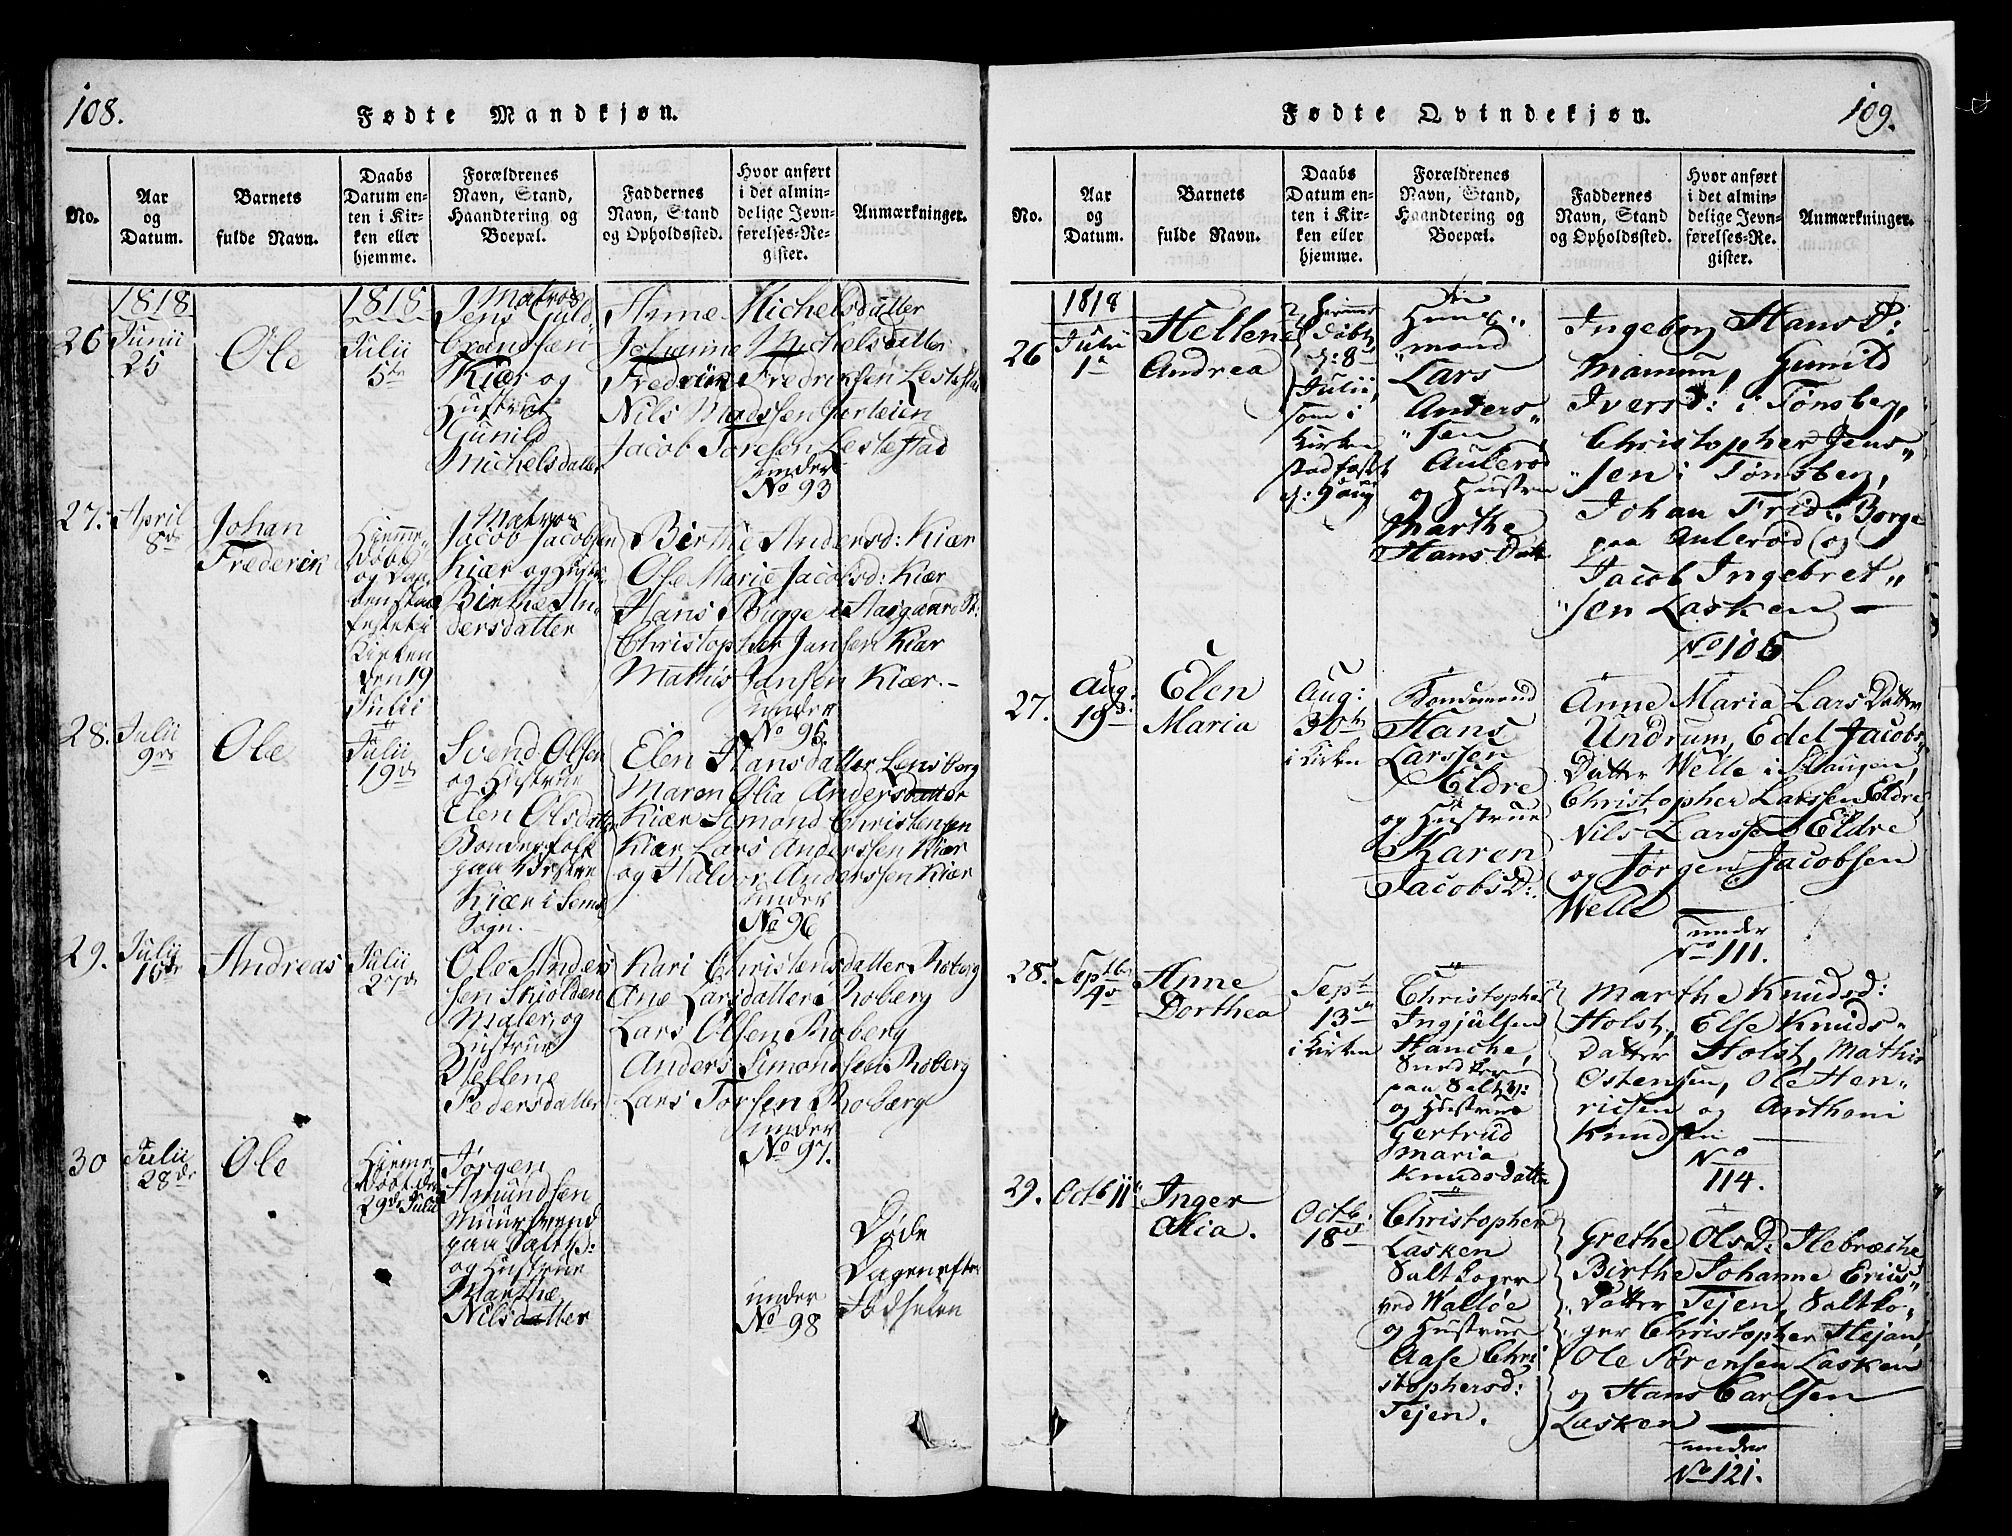 108.
Fødte Mandkjøn.
No.
Aar
og
Datum.
Barnets
fulde Navn.
Daabs
Datum en-
ten i Kir-
ken eller
hjemme.
Forældrenes
Navn, Stand,
Haandtering og
Boepæl.
Faddernes
Navn, Stand
og Opholdssted.
Hvor anført
i det almin-
delige Jevn-
førelses-Re-
gister.
Anmærkninger.
26
1818
Junii
25
Ole
1818
Julii
5te
Matros
Jens Guld-
brandsen
Kiær og
Hustrue
Gunild
Michelsdatter
Anne Michelsdatter
Johanne Michelsdatter
Fredrich Fredriksen Lestestad
Nils Madssen Jarleien
Jacob Toresen Lestestad
under
No 93
27.
April
8de
Johan
Frederik
Hjemme-
døbt
og Daa-
ben stad-
festet i
Kirken
den 19
Julii
Matros
Jacob Jacobsen
Kiær og Hustr.
Birthe An-
dersdatter
Birthe Andersd: Kiær
Ole Marie Jacobsd: Kiær
Hans Bugge i Aasgaard
Christopher Jansen Kiær
Mathis Jansen Kiær.-
under
No 95.
28.
Julii
9de
Ole
Julii
19de
Svend Olsen
og Hustrue
Elen Olsdatter
Bonderfolk
paa
Kiær i Sems
Sogn.
Elen Hansdatter Lensberg
Maren Olia Andersdatter
Kiær Simond Christensen
Kiær Lars Anderssen Kiær
og Haldor Anderssen Kiær
under
No 96
29.
Julii
16de
Andreas
Julii
27de
Ole Anders
sen Skiolden
Maler, og
Hustrue
Hellene
Pedersdatter
Kari Christensdatter Roberg
Ane Larsdatter Roberg
Lars Olsen Roberg
Anders Simonssen Roberg
Lars Torsen Roberg
under
No 97.
30
Julii
28de
Ole
Hjeme
døbt den
29de Julii
Jørgen
Amundsen
Muursvend
paa Salt V:
og Hustrue
Marthe
Nilsdatter
under
No 98
Døde
Dagen efter
Fødselen
109.
Fødte Qvindekjøn.
No.
Aar
og
Datum.
Barnets
fulde Navn.
Daabs
Datum en-
ten i Kir-
ken eller
hjemme.
Forældrenes
Navn, Stand,
Haandtering og
Boepæl.
Faddernes
Navn, Stand
og Opholdssted.
Hvor anført
i det almin-
delige Jevn-
førelses-Re-
gister.
Anmærkninger.
26
1818
Julii
1te
Hellene
Andrea
Hjemme
døbt
d: 8de
Julii,
som i
Kirken
stadfæst
d: 9 aug
Huus-
mand
Lars
Anders-
sen
Aulerød
og Hustrue
Marthe
Hans Datt
Ingeborg Hans D:
Mamun, Gunild
Iversd: i Tønsberg,
Christopher Jens-
sen i Tønsberg,
Johan Frid: Borge
paa Aulerød og
Jacob Ingebret-
sen Lasken —
No 106
27.
Aug:
19de
Elen
Maria
Aug:
30te
i Kirken
Bondemand
Hans
Larssen
Eldre
og Hustrue
Karen
Jacobs D:
Anne Maria Lars Datter
Undrum, Edel Jacobs
Datter Welle i Slaugen
Christopher Larsen Eldre,
Nils Larssen Eldre
og Jørgen Jacobsen
Welle
under
No 111.
28.
Septbr
4de
Anne
Dorthea
Septr
13de
i Kirken
Christopher
Ingjulsen
Hanche,
Snedker
paa Salt V:
og Hustrue
Gertrud
Maria
Knudsdatter
Marthe Knudsd:
Holst, Else Knuds-
datter Holst, Mathis
Ostensen, Ole Hen-
ricsen og Anthoni
Knudsen —
No
114.
29.
Octb 11te
Inger
Alia.
Octb.
18de
Christopher
Lasken
Saltkoger
ved Walløe
og Hustrue
Aase Chri
stophersd:
Tejen.
Grethe Ols D: Hebræche
Birthe Johanne Erics
Datter Tejen, Saltko-
ger Christopher Hejan,
Ole Sørensen Lasken
og Hans Carlsen
Lasken —
under
No 121.